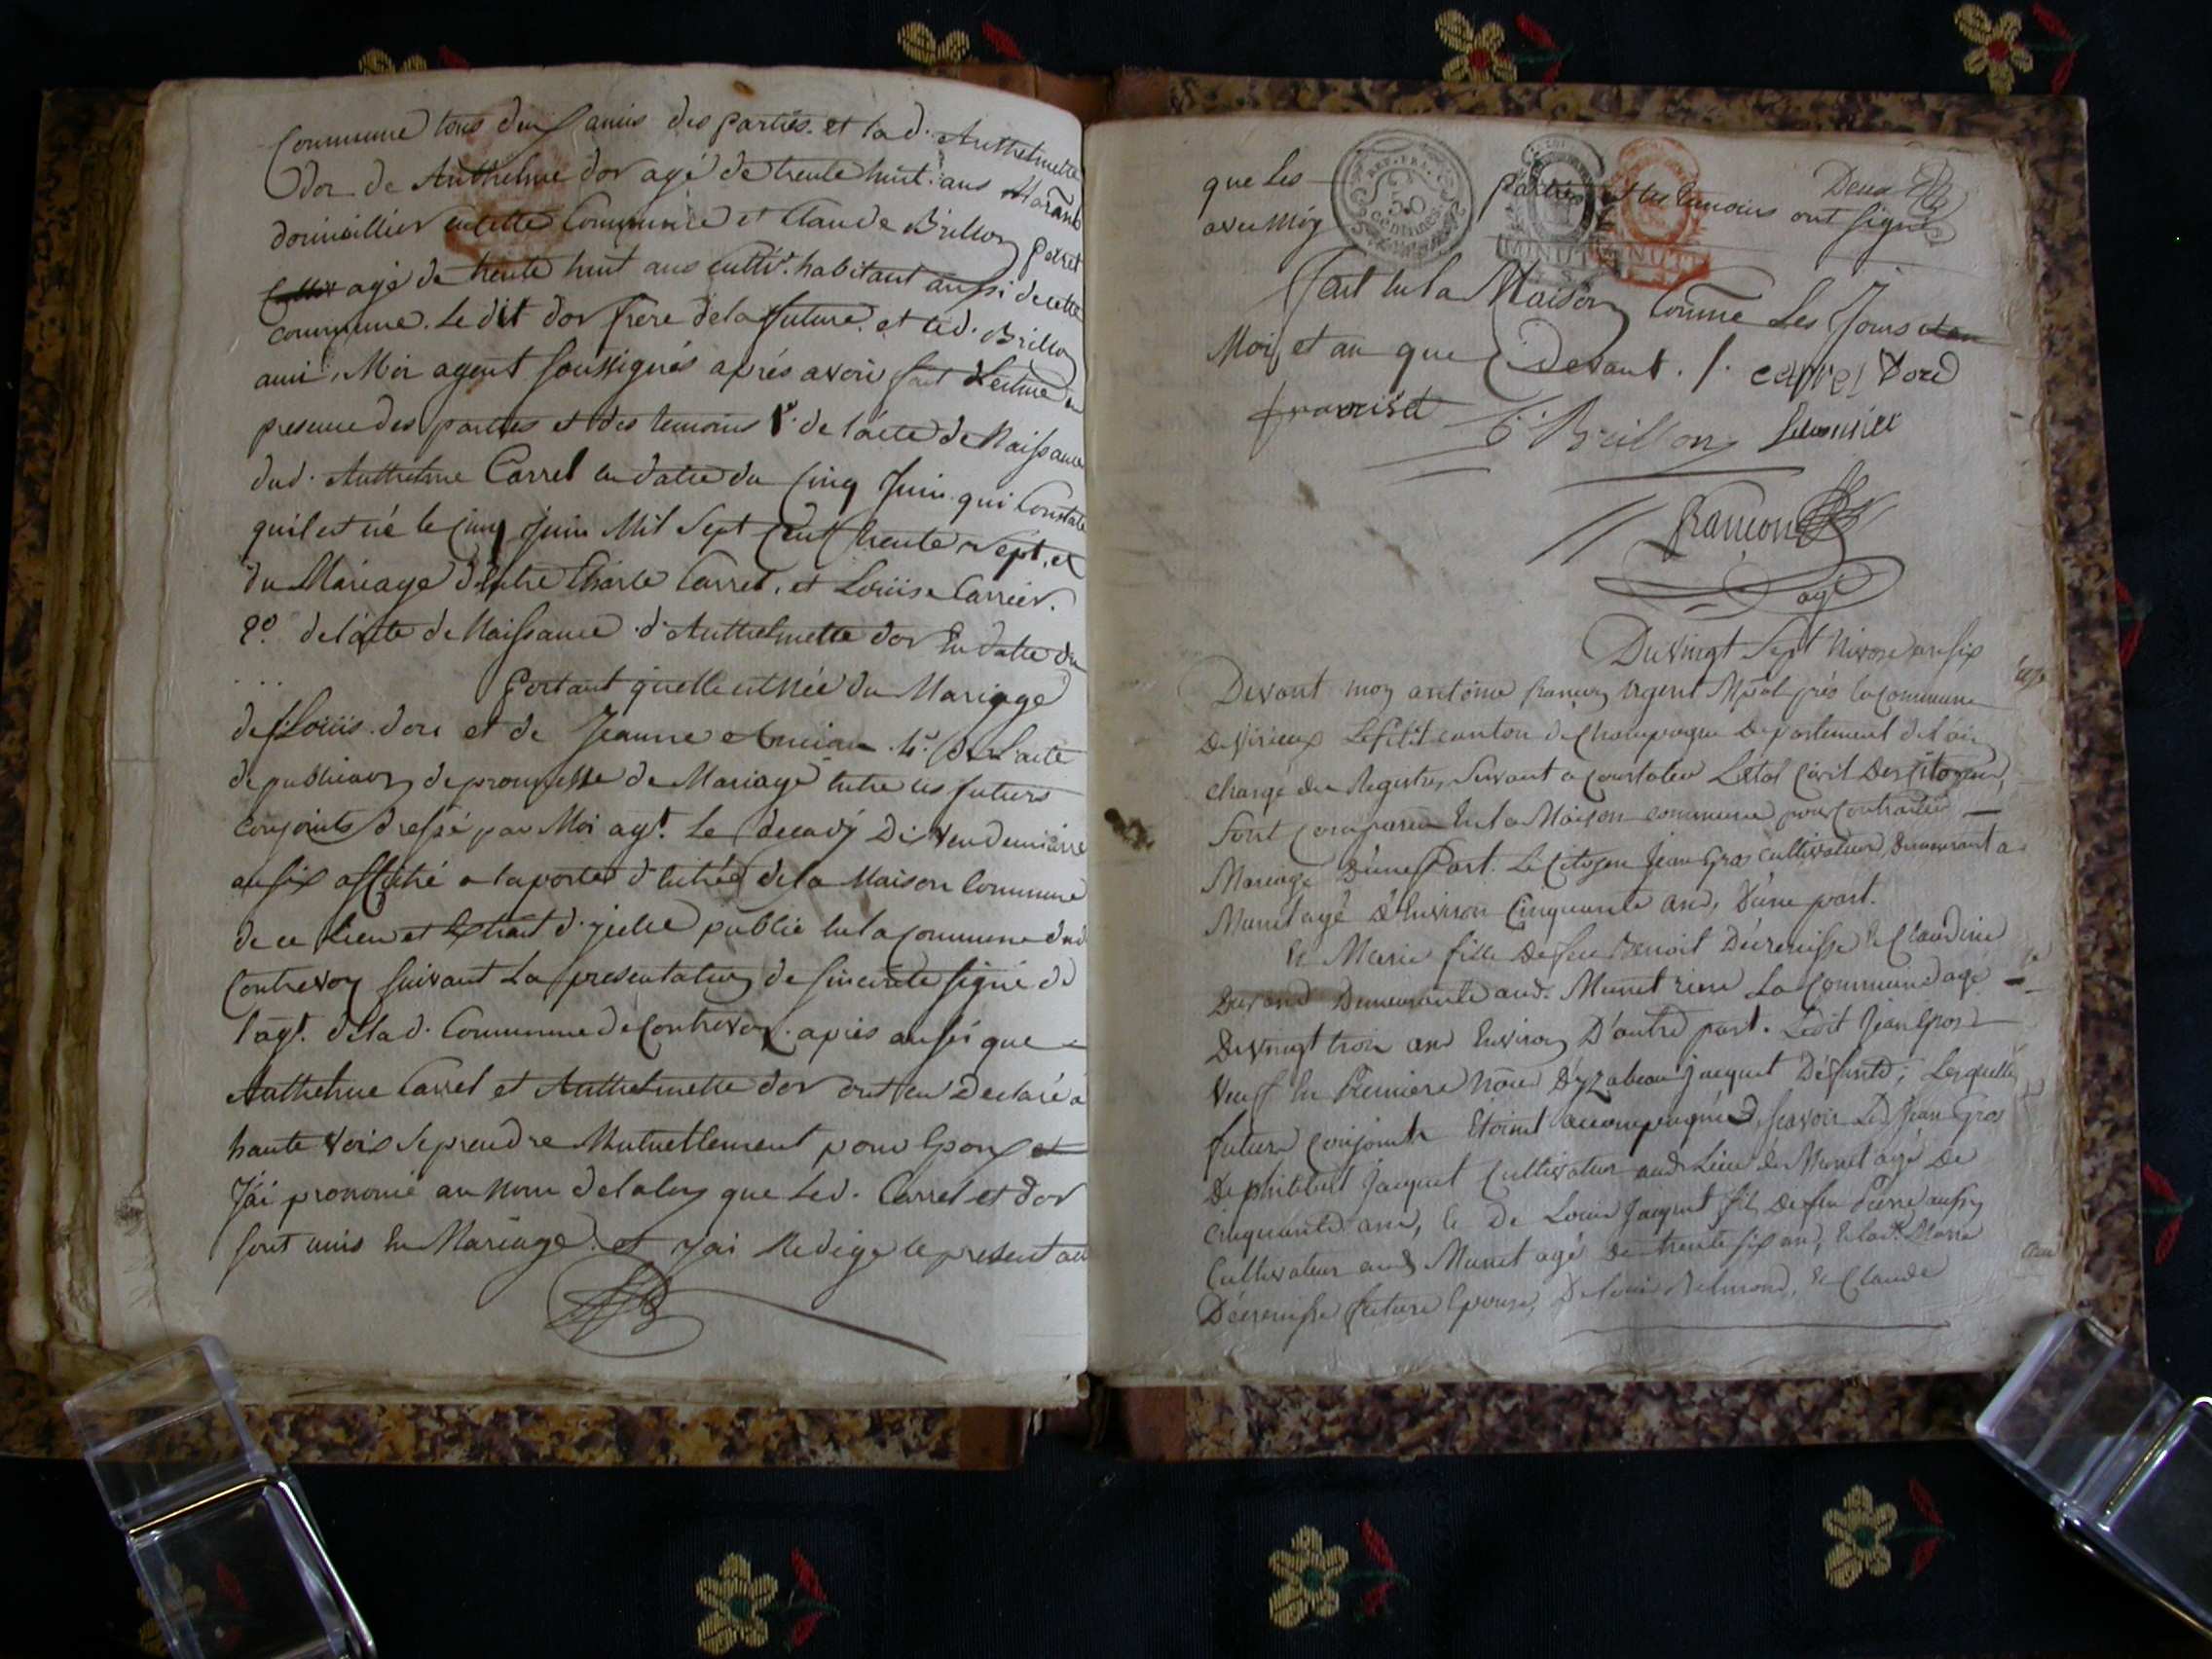 Commune tous deux amis des parties. et la d. Anthelmette
Dor de Anthelme dor agé de trente huit ans
domicillier en cette Commune et Claude Brillon
agé de trente huit ans cultiv. habitant aussi de cette
commune. Le dit dor frere de la future. et led. Brillon
ami. Moi agent soussignés aprés avoir fait Lecture en
presence des parties et des temoins 1° de l'acte de Naissance
dud. Anthelme Carrel en datte du cinq Juin. qui Constate
quil est né le cinq Juin Mil Sept Cent trente Sept, et
du Mariage d'Entre Charle Carrel, et Louise Carrier.
2° de l'acte de Naissance d'Anthelmette dor En datte du
. . . Portant quelle est Née du Mariage
de Louis dor et de Jeanne 4° de L'acte
de publication de promesse de Mariage Entre les futurs
conjoints dressé par Moi agt. Le decady Dix Vendemiaire
an six affiché a la porte d'Entrée de la Maison Commune
de ce Lieu et Extrait d'ycelle publié En la commune dud
Contrevoz suivant La presentation de signé de
l'agt. de la d. Commune de Contrevoz. après aussi que
Anthelme Carrel et Anthelmette dor ont eu Déclaré a
haute voix se prendre Mutuellement pour Epoux et
J'ai prononcé au Nom de la loy que Led. Carrel et dor
sont unis En Mariage. et j'ai Redigé le present acte
que Les parties et les temoins ont signés
avec Moy
REP. FRA.
50
Centimes
MINUTE
MINUTE
Deux
Fait En la Maison Comme Les Jours
Mois et an que Devant. carrel Dord
Brillon
francon
agt
Du vingt Sept Nivose an six
Devant moy antoine francon Agent Mpal près la commune
De Virieux Le Petit canton de Champagne Departement de l'ain
chargé des Registres servant a Constater L'état Civil Des Citoyens,
Sont comparus En la Maison commune pour Contracter
Mariage D'une Part. Le Citoyen Jean Gros cultivateur, demeurant a
Munet agé D'Environ Cinquante ans, D'une part.
Et Marie fille De feu Benoit Décrenisse Et Claudine
Durand Demeurante aud. Munet La Commune agé
De vingt trois ans Environ D'autre part. Ledit Jean Gros
Veuf En Premiere D'yzabeau Jacquet Défunte; Lesquelles
futurs conjoints Etoint accompagnés, scavoir Led. Jean Gros
De philibert Jacquet Cultivateur aud. Lieu de Munet agé De
Cinquante ans, Et De Louis Jacquet fils De feu Pierre aussy
Cultivateur aud. Munet agé de trente six ans, Et lad. Marie
Décrenisse future Epouse, De Louis Et Claude